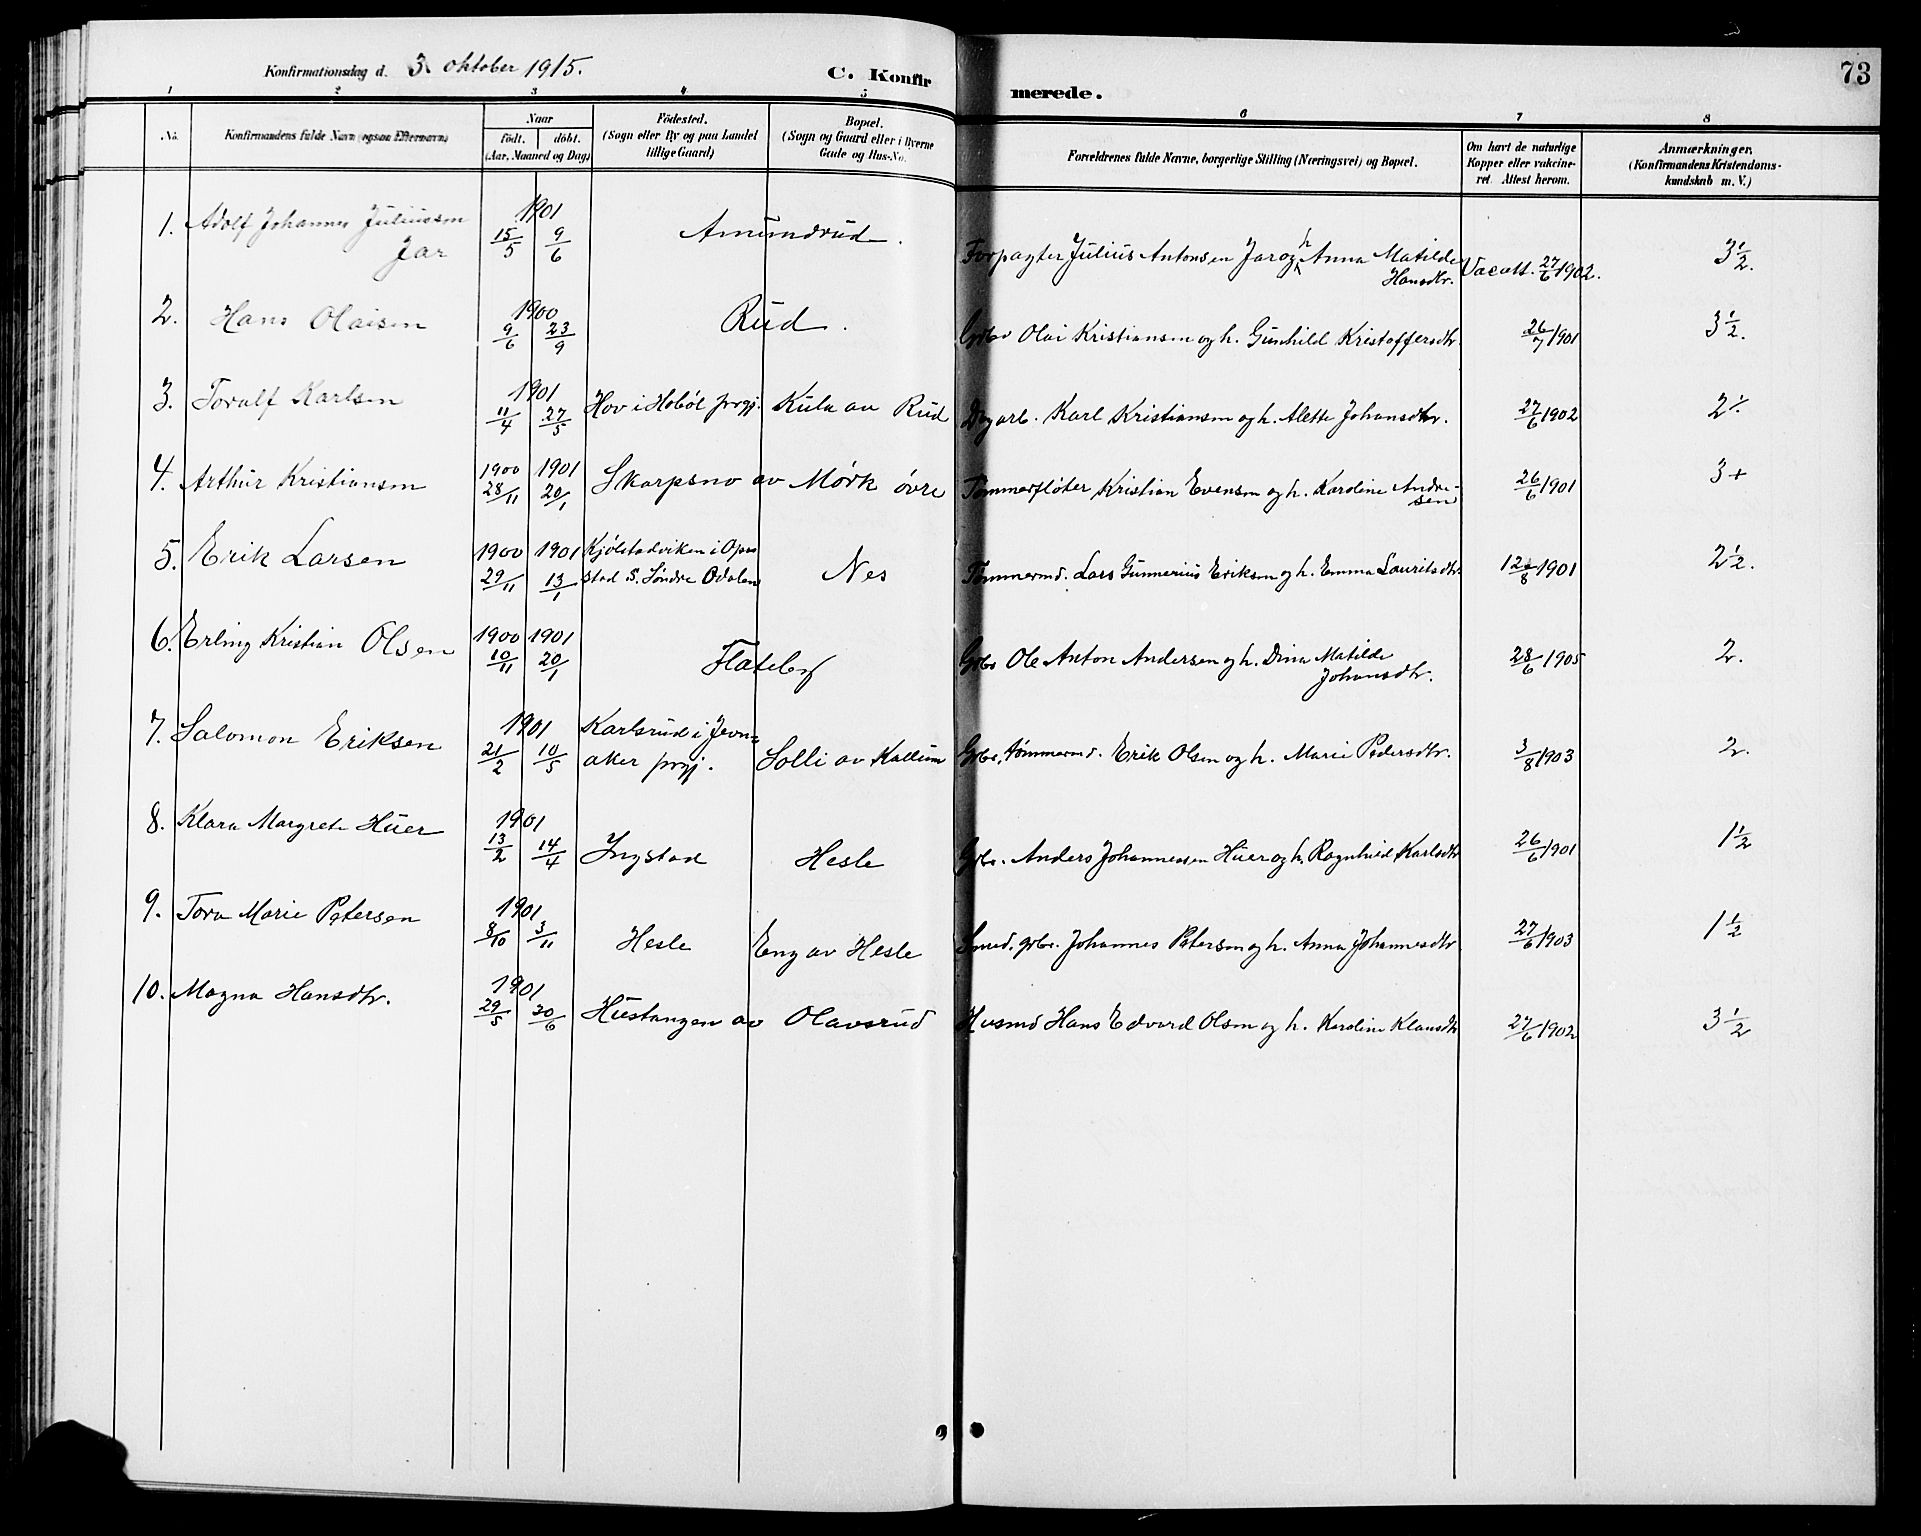 Konfirmationsdag d. 3. oktober 1915.
C. Konfirmerede.
73
1 2 3 4 5 6 7 8
No.
Konfirmandens fulde Navn (ogsaa Efternavn)
Naar
födt. döbt.
(Aar, Maaned og Dag)
Födested.
(Sogn eller By og paa Landet
tillige Gaard)
Bopæl.
(Sogn og Gaard eller i Byerne
Gade og Hus-No.
Forældrenes fulde Navne, borgerlige Stilling (Næringsvei) og Bopæl.
Om havt de naturlige
Kopper eller vakcine-
ret. Attest herom.
Anmærkninger.
(Konfirmandens Kristendoms-
kundskab m. V.)
1901
1. Adolf Johannes Juliussen 15/5 9/6 Amundrud.
Jar
Forpagter Julius Antonsen Jar og h. Anna Matilde
Hansdtr. Vacatt. 27/6 1902. 3 1/2.
1900
2. Hans Olaisen 9/6 23/9 Rud.
Grbr Olai Kristiansen og h. Gunhild Kristoffersdtr. 26/7 1901 3 1/2.
1901
3. Toralf Karlsen 11/4 27/5 Hov i Hobøl prgj. Kula av Rud
Dagarb. Karl Kristiansen og h. Alette Johansdtr. 27/6 1902 2 ÷
1900 1901
4. Arthur Kristiansen 28/11 20/1 Skarpsno av Mørk øvre
Tømmerfløter Kristian Evensen og h. Karoline Andre-
sen 26/6 1901 3+
1900 1901 Kjölstadviken i Opstad
5. Erik Larsen 29/11 13/1 S. Søndre Odalen Nes
Tømmermd. Lars Gunnerius Eriksen og h. Emma Lauritsdtr. 12/8 1901 2 1/2.
1900 1901
6. Erling Kristian Olsen 10/11 20/1 Flateby
Grbr Ole Anton Andersen og h. Dina Matilde
Johansdtr. 28/6 1905 2.
1901 Karlsrud i Jevn=
7. Salomon Eriksen 21/2 10/5 aker prgj. Solli av Kallum
Grbr, tømmermd. Erik Olsen og h. Marie Pedersdtr. 3/8 1903 2.
1901
8. Klara Margrete Huer 13/2 14/4 Ingstad Hesle
Grbr. Anders Johannessen Huer og h. Ragnhild Karlsdtr 26/6 1901 1 1/2
1901
9. Tora Marie Petersen 8/10 3/11 Hesle Eng av Hesle
Smed, grbr. Johannes Petersen og h. Anna Johannesdtr 27/6 1903 1 1/2
1901
10. Magna Hansdtr. 29/5 30/6 Hustangen av Olavsrud
Husmd Hans Edvard Olsen og h. Karoline Klausdtr 27/6 1902 3 1/2